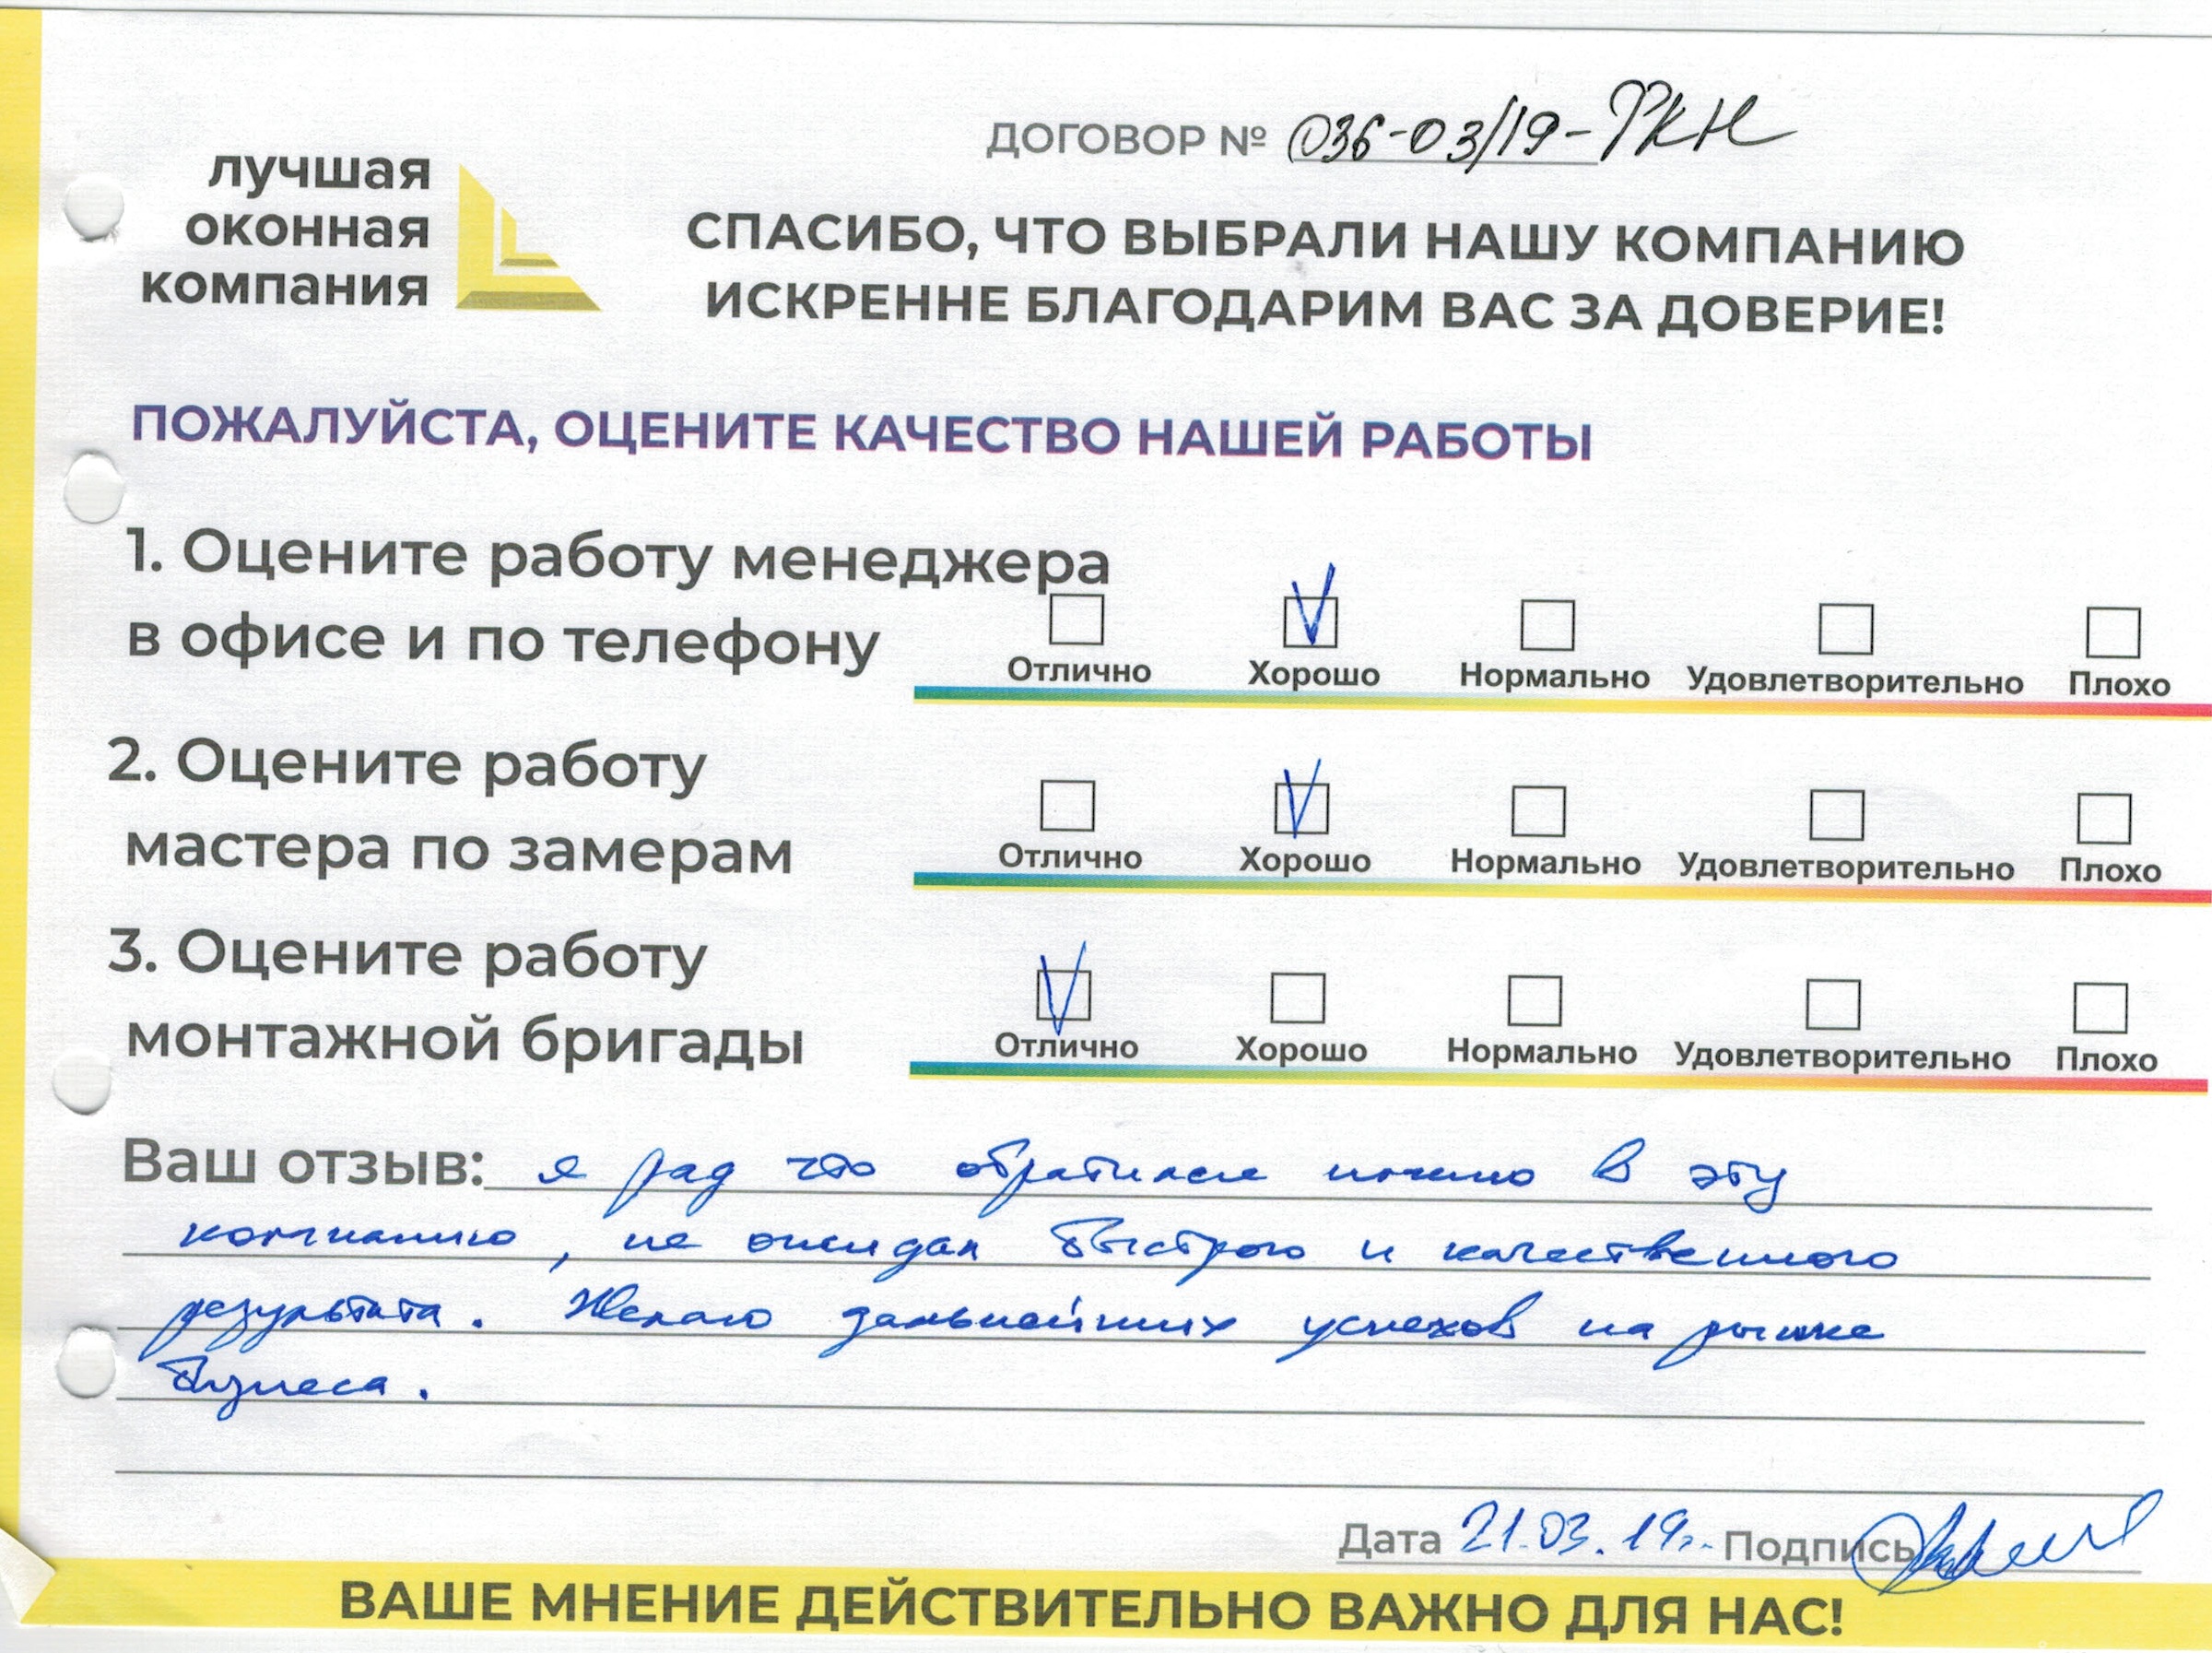 ДОГОВОР № 036-03/19-РКН
лучшая
оконная
компания
СПАСИБО, ЧТО ВЫБРАЛИ НАШУ КОМПАНИЮ
ИСКРЕННЕ БЛАГОДАРИМ ВАС ЗА ДОВЕРИЕ!
ПОЖАЛУЙСТА, ОЦЕНИТЕ КАЧЕСТВО НАШЕЙ РАБОТЫ
1. Оцените работу менеджера
в офисе и по телефону
Отлично Хорошо Нормально Удовлетворительно Плохо
2. Оцените работу
мастера по замерам
Отлично Хорошо Нормально Удовлетворительно Плохо
3. Оцените работу
монтажной бригады
Отлично Хорошо Нормально Удовлетворительно Плохо
Ваш отзыв: я рад что обратился именно в эту
компанию, не ожидал быстрого и качественного
результата. Желаю дальнейших успехов на рынке
бизнеса.
Дата 21.03.19г. Подпись
ВАШЕ МНЕНИЕ ДЕЙСТВИТЕЛЬНО ВАЖНО ДЛЯ НАС!